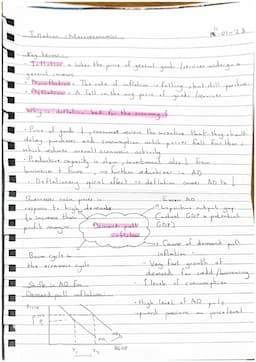 Inflation - Macroeconomics
-01-23
Key terms -
• Inflation - when the price of general goods/services undergo a
general increase
• Disinflation - The rate of inflation is falling, but still positive
• Deflation - A fall in the avg price of goods/services
Why is deflation bad for the economy?
• Price of goods ↓, consumers receive the incentive that they should
delay purchases and consumption until prices fall further
which reduces overall economic activity
• Productive capacity is down, investment also ↓ from
business & firms, further reductions in AD
• Deflationary spiral effect = deflation causes AD to ↓
Businesses raise prices in
response to high demand
to increase their
profit margins
Excess AD
Important output gap
(actual GDP > potential
GDP)
Demand pull
inflation
Boom cycle in
the economic cycle
• Cause of demand pull
inflation -
• Very fast growth of
demand for credit/borrowing
• ↑ levels of consumption
Shifts in AD for
Demand pull inflation
• High level of AD puts
upward pressure on price level
Price